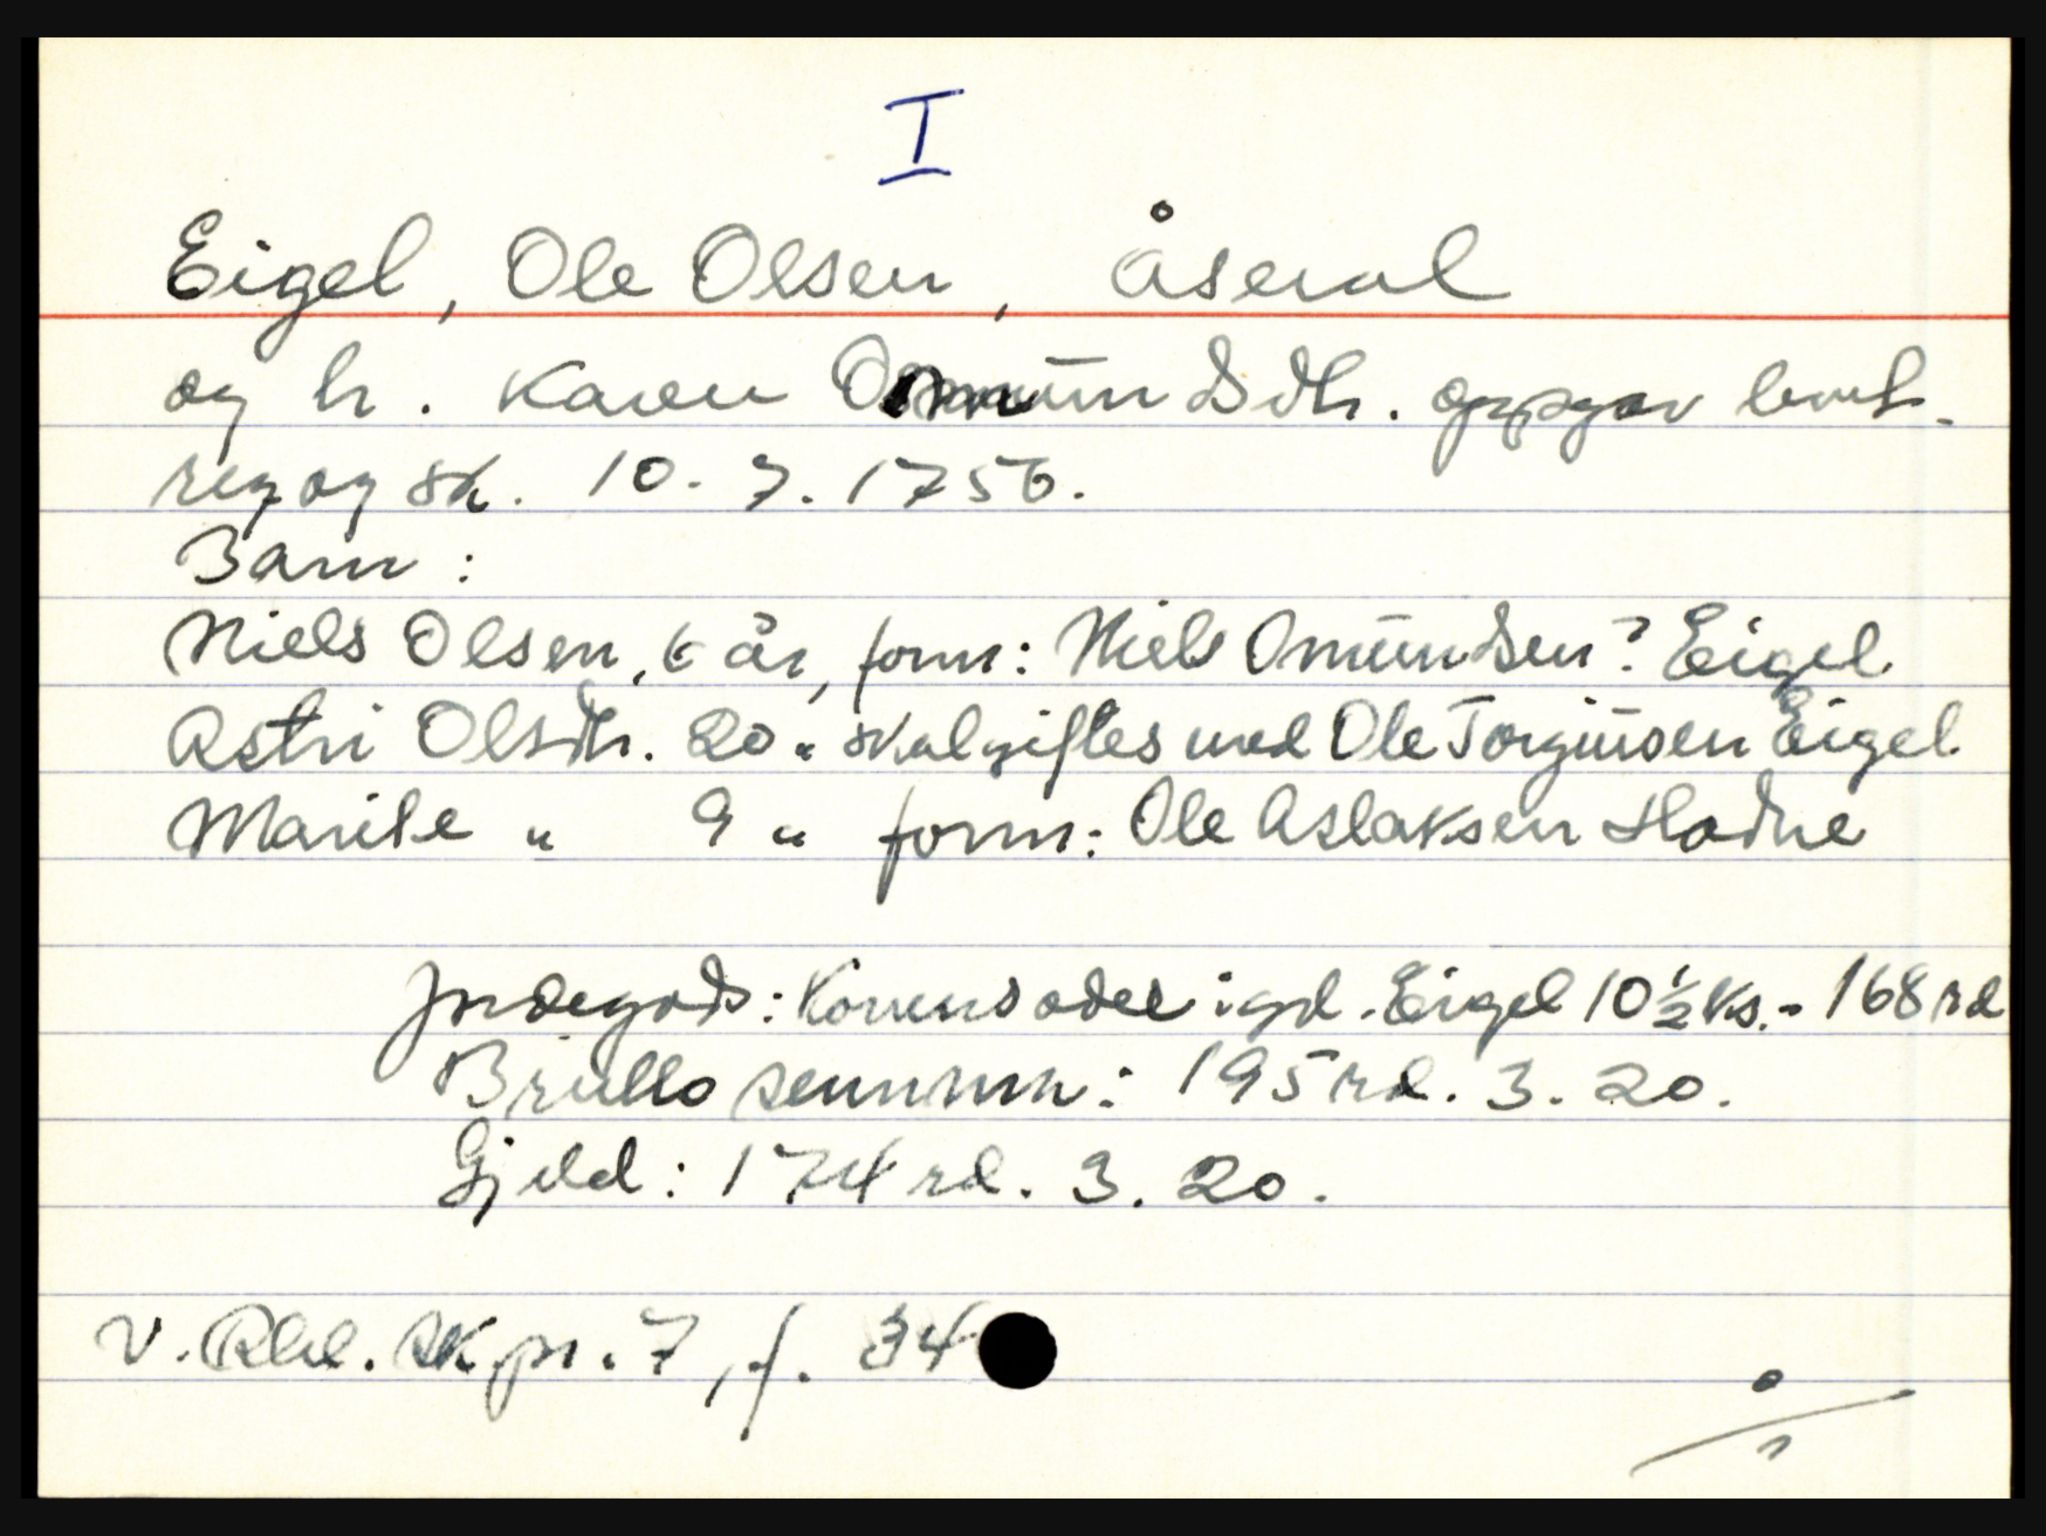 I
Eigel, Ole Olsen, Åseral
og h. Karen Omundsdtr. oppgav bort-
reg og sk. 10. 7. 1756.
Barn:
Niels Olsen, 6 år, form: Niels Omundsen? Eigel
Astri Olsdtr. 20 " skal giftes med Ole Torgiusen Eigel
Marite " 9 " form: Ole Aslaksen Hodne
Jordegods: Konens odel i gd. Eigel 10 ½ ks. - 168 rd
Brutto summen: 195 rd. 3. 20.
Gjeld: 174 rd. 3. 20.
V. Rbl. sk pr. 7, f. 34